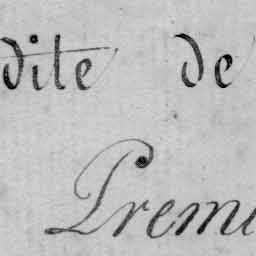 dite de
Premi